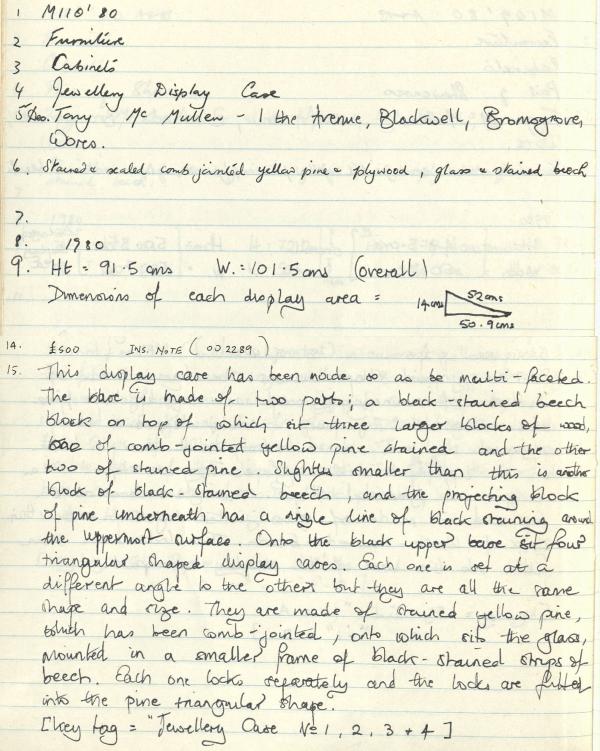 1 M110' 80
2 Furniture
3 Cabinets
4 Jewellery Display Case
5 Des. Tony Mc Mullen - 1 the Avenue, Blackwell, Bromsgrove,
Worcs.
6. Stained & sealed comb jointed yellow pine & plywood, glass & stained beech
7.
8. 1980
9. Ht = 91.5 cms W. = 101.5 cms (overall)
Dimensions of each display area =
14 cms 52 cms
50.9 cms
14. £500 INS. NOTE (002289)
15. This display case has been made so as be multi-faceted.
The base is made of two parts; a black-stained beech
block on top of which sit three larger blocks of wood,
one of comb-jointed yellow pine stained and the other
two of stained pine. Slightly smaller than this is another
block of black-stained beech, and the projecting block
of pine underneath has a single line of black staining around
the uppermost surface. Onto the black upper base sit four
triangular shaped display cases. Each one is set at a
different angle to the others but they are all the same
shape and size. They are made of stained yellow pine,
which has been comb-jointed, onto which sits the glass,
mounted in a smaller frame of black-stained strips of
beech. Each one locks separately and the locks are fitted
into the pine triangular shape.
[Key tag = "Jewellery Case No 1, 2, 3 + 4 ]